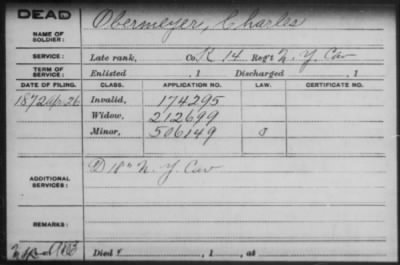 DEAD
NAME OF SOLDIER: Obermeyer, Charles
SERVICE: Late rank, Co. K 14 Reg't N. Y. Cav
TERM OF SERVICE: Enlisted , 1 Discharged , 1
DATE OF FILING. CLASS. APPLICATION NO. LAW. CERTIFICATE NO.
1872 Apr. 26 Invalid, 174295
Widow, 212699
Minor, 506149
ADDITIONAL SERVICES: D 18" N. Y. Cav
REMARKS:
Died , 1 , at